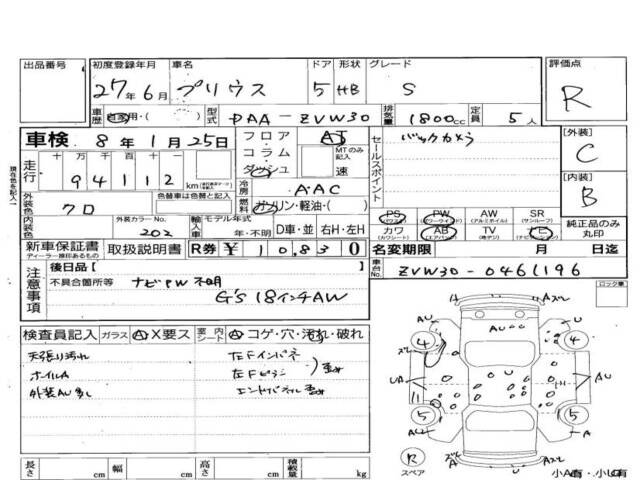 出品番号 初度登録年月 車名 ドア 形状 グレード 評価点
27年6月 プリウス 5 HB S R
車歴 自家用・( ) 型式 DAA-ZVW30 排気量 1800cc 定員 5人
車検 8年1月25日
フロア・コラム・ダッシュ AT MTのみ記入 速
セールスポイント バックカメラ
[外装] C
[内装] B
走行 十万 万 千 百 十 一
94112 km
冷房 AAC
燃料 ガソリン・軽油・( )
外装色 クロ 色替車は色替前色
内装色 外装カラーNo. 202
輸入車 モデル年式 年・不明 D車・並 右H・左H
PS PW AW SR
(パワステ) (パワーウインド) (アルミホイル) (サンルーフ)
カワ AB TV
(カワシート) (エアバック) (地デジ) (ナビゲーション)
純正品のみ丸印
新車保証書 取扱説明書 R券 ¥10830
ディーラー捺印あるもの
名変期限 月 日迄
車台No. ZVW30-0461196
注意事項
後日品[ ]
不具合箇所等 ナビPW不明
G's 18インチAW
ロック車
検査員記入 ガラス A・X要ス 室内シート A・コゲ・穴・汚れ・破れ
天張り汚れ 左Fインパネ
ホイルA 左Fピラー
外装AU多し エンドパネル
長さ cm 幅 cm 高さ cm 積載量 kg
A A
AU U
4 4
UA AU
5 5
AU U
R
スペア
A U U
小A有・小U有